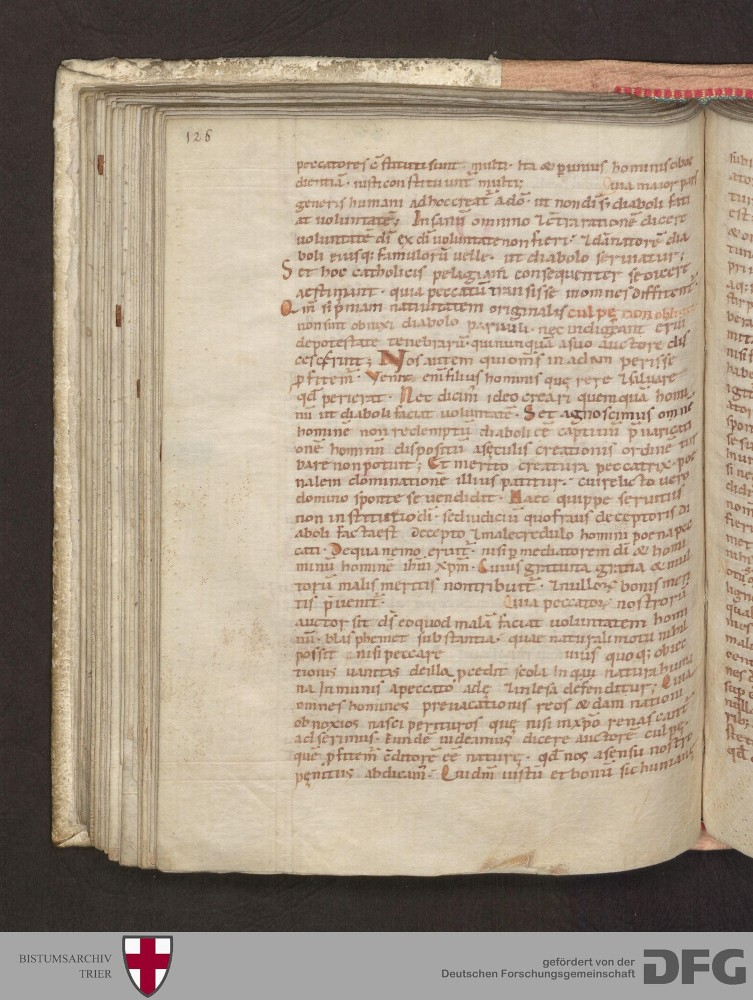 126
peccatores c̄stituti sunt multi · ita & p unius hominis oboe
dientiā · iusti constituunt multi;
Quia maior pars
generis humani ad hoc creat̄ a dō · ut non di s; diaboli faci
at voluntatē; Insanū omnino & c̄tra rationē dicere
voluntatē di ex di voluntate non fieri · & dānatorē dia
boli eiusq; famulorū velle · ut diabolo serviatur;
Set hoc catholicis pelagiani consequenter se dicere
aestimant · quia peccatū transisse in omnes diffitent̄ ·
Qm̄ si p primam nativitatem originalis culpe non obligat
non sint obnoxii diabolo parvuli · nec indigeant erui
de potestate tenebrarū · qui nunquā a suo auctore dis
cesserint; Nos autem qui omis in adam perisse
pfitem̄ · Venit eni filius hominis querere & salvare
qd perierat · Nec dicim̄ ideo creari quemquā homi
nū ut diaboli faciat voluntatē · Set agnoscimus omne
homine non redemptū diaboli ee captivū · pvaricati
onē hominū dispositū aseculis creationis ordinē tur
bare non potuit; Et merito creatura peccatrix · poe
nalem dominationē illius patitur · cui relicto vero
domino sponte se vendidit · Haec quippe servitus
non institutio di · sed iudiciū quo fraus deceptoris di
aboli facta est decepto & male credulo homini poena pec
cati · De qua nemo eruit̄ · nisi p mediatorem di & homi
minū hominē ihm xpm · Cuius gratuita gratia & mul
torū malis meritis non tribuit̄ · & nullo bonis meri
tis pvenit̄ ·
Quia peccatorū nostrorū
auctor sit ds eo quod malā faciat voluntatem homi
nū · blasphemet substantia · quae naturali motu nihil
possit nisi peccare
uius quoq; obiec
tionis vanitas de illa pcedit scola in qua natura huma
na inmunis a peccato adę & inlesa defenditur; Quia
omnes homines prevaricationis reos & damnationi
obnoxios nasci perituros que nisi in xpo renascant̄
adserimus · Eundē videamus dicere auctorē culpe ·
quē pfitem̄ c̄ditorē ee nature · qd nos a sensu nostro
penitus abdicam̄ · Qui dm iustū et bonū sic humane
BISTUMSARCHIV
TRIER
gefördert von der
Deutschen Forschungsgemeinschaft
DFG